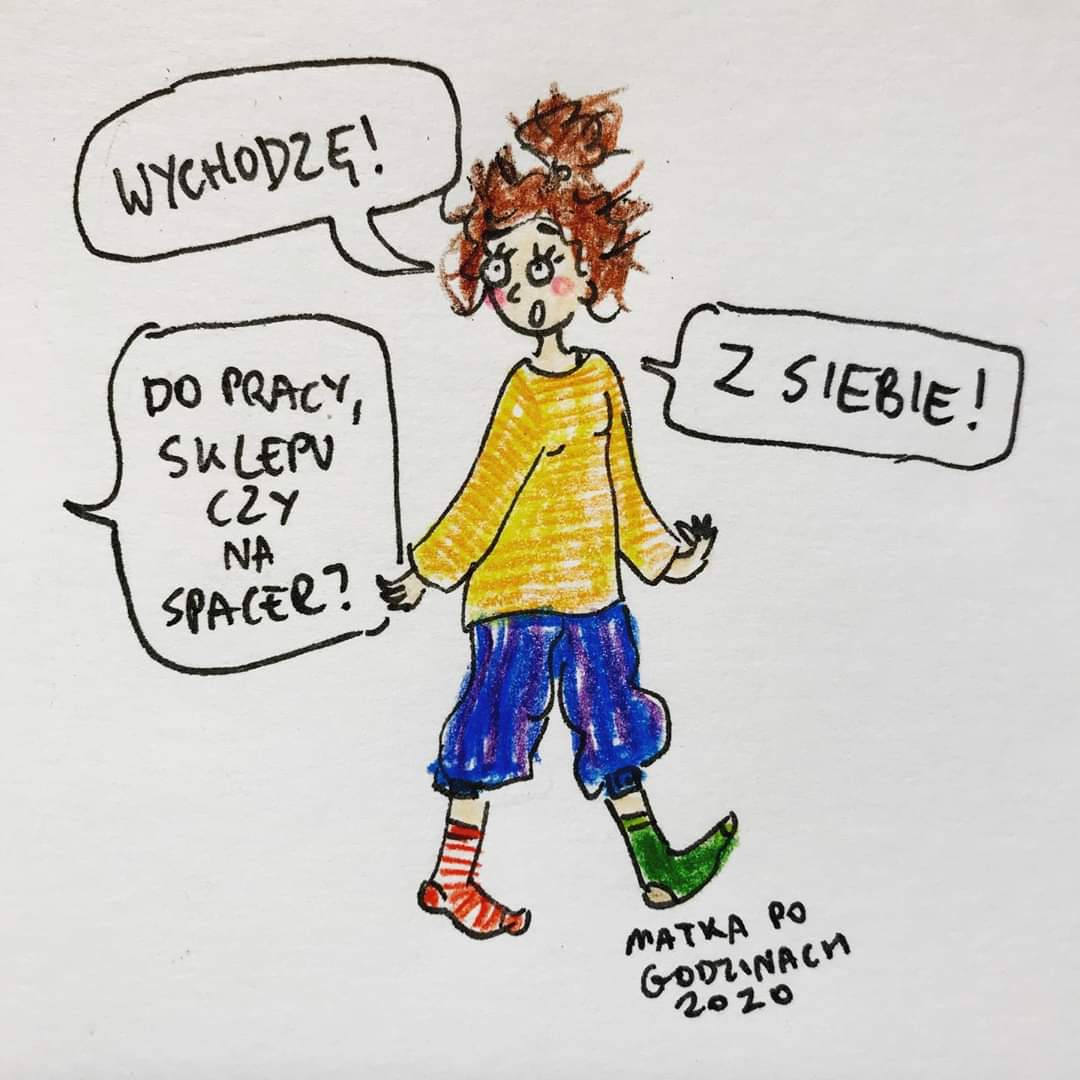 WYCHODZĘ!
DO PRACY,
SKLEPU
CZY
NA
SPACER?
Z SIEBIE!
MATKA PO
GODZINACH
2020